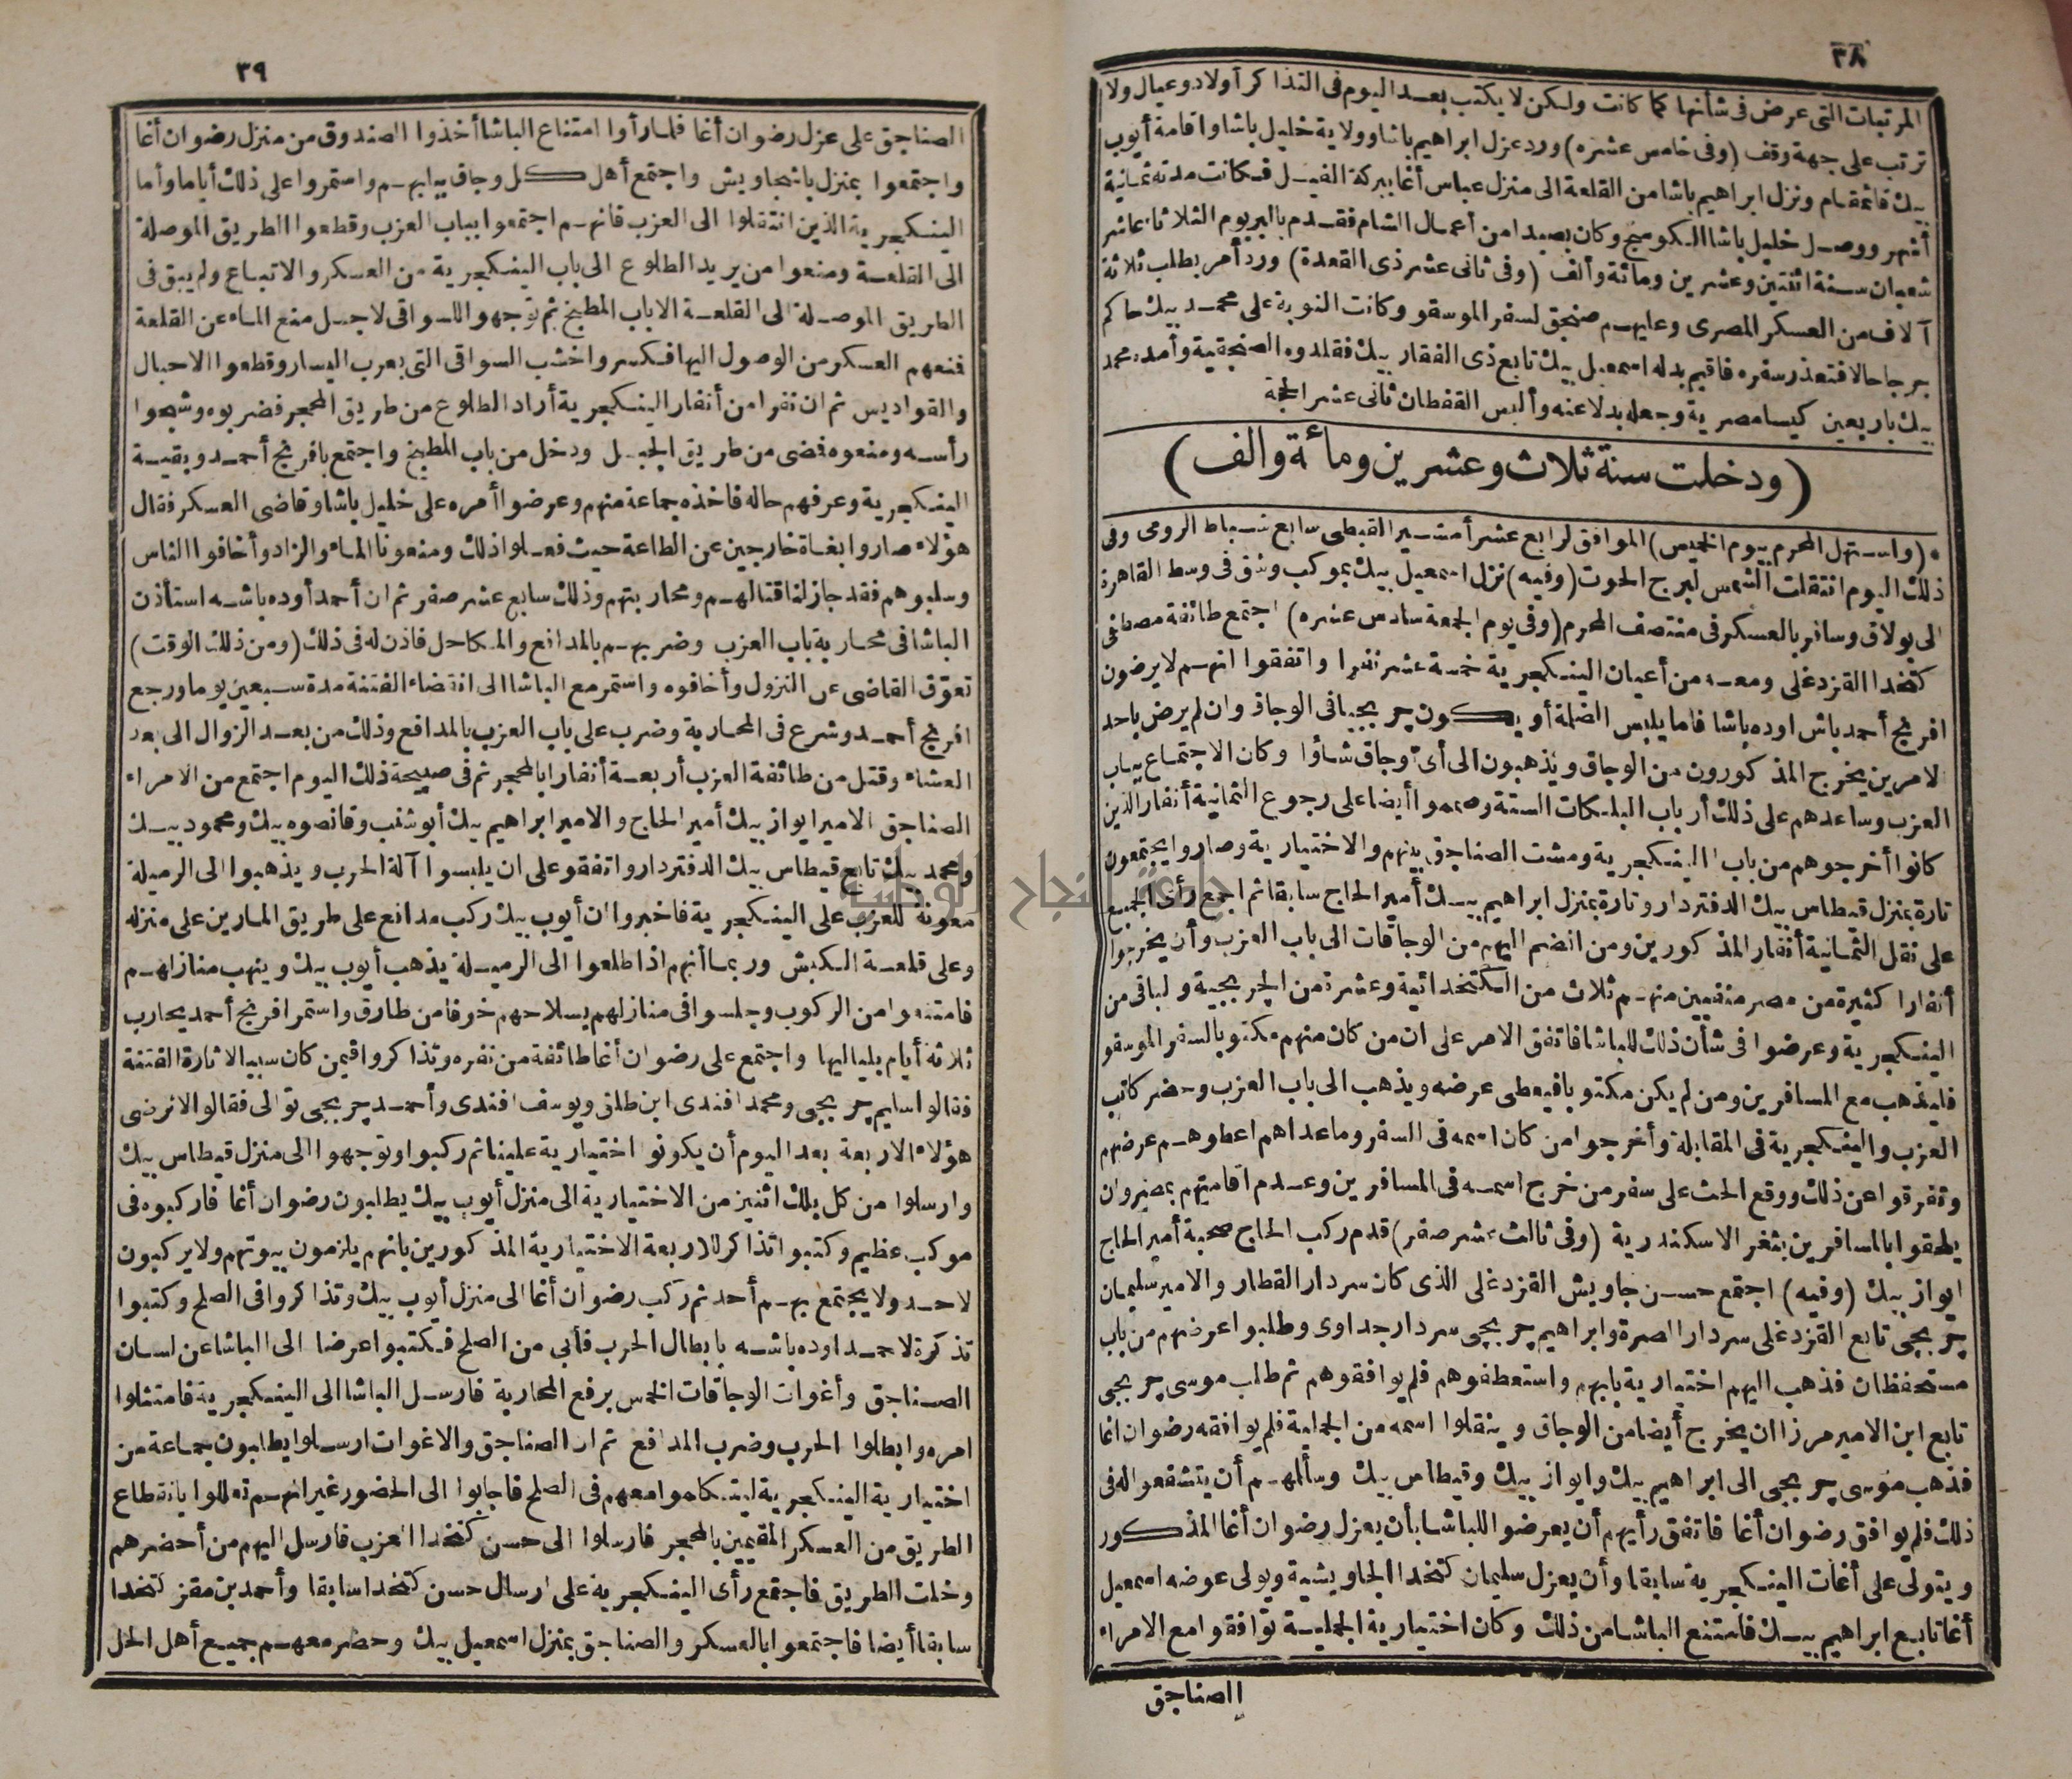 ٣٨
المرتبات التي عرض في شأنها كما كانت ولكن لا يكتب بعد اليوم في التذاكر أولاد وعيال ولا
ترتب على جهة وقف (وفي خامس عشره) ورد عزل ابراهيم باشا وولاية خليل باشا واقامة أيوب
بيك قائمقام ونزل ابراهيم باشا من القلعة الى منزل عباس أغا ببركة الفيل فكانت مدته ثمانية
أشهر ووصل خليل باشا الكوسج وكان بصيدا من أعمال الشام فقدم بالبر يوم الثلاثا عاشر
شعبان سنة اثنتين وعشرين ومائة وألف (وفي ثاني عشر ذي القعدة) ورد أمر بطلب ثلاثة
آلاف من العسكر المصري وعليهم صنجق لسفر الموسقو وكانت النوبة على محمد بيك حاكم
جرجا حالا فتعذر سفره فاقيم بدله اسمعيل بيك تابع ذي الفقار بيك فقلدوه الصنجقية وأمده محمد
بيك باربعين كيسا مصرية وجعله بدلا عنه وألبس القفطان ثاني عشر الحجة
(ودخلت سنة ثلاث وعشرين ومأة والف)
* (واستهل المحرم بيوم الخميس) الموافق لرابع عشر أمشير القبطي سابع شباط الرومي وفي
ذلك اليوم انتقلت الشمس لبرج الحوت (وفيه) نزل اسمعيل بيك بموكب وشق في وسط القاهرة
الى بولاق وسافر بالعسكر في منتصف المحرم (وفي يوم الجمعة سادس عشره) اجتمع طائفة مصطفى
كتخدا القزدغلي ومعه من أعيان الينكجرية خمسة عشر نفرا واتفقوا انهم لا يرضون
افرنج أحمد باش اوده باشا فاما يلبس الضلمة أو يكون جربجيا في الوجاق وان لم يرض باحد
الامرين يخرج المذكورون من الوجاق ويذهبون الى أي وجاق شاؤا وكان الاجتماع بباب
العزب وساعدهم على ذلك أرباب البلكات الستة وصمموا أيضا على رجوع الثمانية أنفار الذين
كانوا أخرجوهم من باب الينكجرية ومشت الصناجق بينهم والاختيارية وصاروا يجتمعون
تارة بمنزل قيطاس بيك الدفتردار وتارة بمنزل ابراهيم بيك أمير الحاج سابقا ثم اجمع رأى الجميع
على نقل الثمانية أنفار المذكورين ومن انضم اليهم من الوجاقات الى باب العزب وأن يخرجوا
أنفارا كثيرة من مصر منفيين منهم ثلاث من الكتخدائية وعشرة من الجربجية والباقي من
الينكجرية وعرضوا في شأن ذلك للباشا فاتفق الامر على ان من كان منهم مكتوبا لسفر الموسقو
فليذهب مع المسافرين ومن لم يكن مكتوبا فيعطى عرضه ويذهب الى باب العزب وحضر كاتب
العزب والينكجرية في المقابلة وأخرجوا من كان اسمه في السفر وما عداهم اعطوهم عرضهم
وتفرقوا عن ذلك ووقع الحث على سفر من خرج اسمه في المسافرين وعدم اقامتهم بمصر وان
يلحقوا بالمسافرين بثغر الاسكندرية (وفي ثالث عشر صفر) قدم ركب الحاج صحبة أمير الحاج
ايواز بيك (وفيه) اجتمع حسن جاويش القزدغلي الذي كان سردار القطار والامير سليمان
جربجي تابع القزدغلي سردار الصرة وابراهيم جربجي سردار جداوى وطلبوا عرضهم من باب
مستحفظان فذهب اليهم اختيارية بابهم واستعطفوهم فلم يوافقوهم ثم طلب موسى جربجي
تابع ابن الامير مرزا ان يخرج أيضا من الوجاق وينقلوا اسمه من الجملية فلم يوافقه رضوان اغا
فذهب موسى جربجي الى ابراهيم بيك وايواز بيك وقيطاس بيك وسألهم أن يتشفعوا له في
ذلك فلم يوافق رضوان أغا فاتفق رأيهم أن يعرضوا للباشا بأن يعزل رضوان أغا المذكور
ويتولى على أغات الينكجرية سابقا وأن يعزل سليمان كتخدا الجاويشية ويولى عوضه اسمعيل
أغا تابع ابراهيم بيك فامتنع الباشا من ذلك وكان اختيارية الجملية توافقوا مع الامراء
الصناجق
٣٩
الصناجق على عزل رضوان أغا فلما رأوا امتناع الباشا أخذوا الصندوق من منزل رضوان أغا
واجتمعوا بمنزل باشجاويش واجتمع أهل كل وجاق ببابهم واستمروا على ذلك أياما وأما
الينكجرية الذين انتقلوا الى العزب فانهم اجتمعوا بباب العزب وقطعوا الطريق الموصلة
الى القلعة ومنعوا من يريد الطلوع الى باب الينكجرية من العسكر والاتباع ولم يبق في
الطريق الموصلة الى القلعة الا باب المطبخ ثم توجهوا للسواقي لاجل منع الماء عن القلعة
فنعهم العسكر من الوصول اليها فكسروا خشب السواقي التي بعرب اليسار وقطعوا الاحبال
والقواديس ثم ان نفرا من أنفار الينكجرية أراد الطلوع من طريق المحجر فضربوه وشجوا
رأسه ومنعوه فمضى من طريق الجبل ودخل من باب المطبخ واجتمع بافرنج أحمد وبقية
الينكجرية وعرفهم حاله فاخذه جماعة منهم وعرضوا أمره على خليل باشا وقاضي العسكر فقال
هؤلاء صاروا بغاة خارجين عن الطاعة حيث فعلوا ذلك ومنعونا الماء والزاد وأخافوا الناس
وسلبوهم فقد جاز لنا قتالهم ومحاربتهم وذلك سابع عشر صفر ثم ان أحمد أوده باشه استأذن
الباشا في محاربة باب العزب وضربهم بالمدافع والمكاحل فاذن له في ذلك (ومن ذلك الوقت)
تعوق القاضي عن النزول وأخافوه واستمر مع الباشا الى انقضاء الفتنة مدة سبعين يوما ورجع
افرنج أحمد وشرع في المحاربة وضرب على باب العزب بالمدافع وذلك من بعد الزوال الى بعد
العشاء وقتل من طائفة العزب أربعة أنفار بالمحجر ثم في صبيحة ذلك اليوم اجتمع من الامراء
الصناجق الامير ايواز بيك أمير الحاج والامير ابراهيم بيك أبو شنب وقانصوه بيك ومحمود بيك
ومحمد بيك تابع قيطاس بيك الدفتردار واتفقو على ان يلبسوا آلة الحرب ويذهبوا الى الرميلة
معونة للعزب على الينكجرية فاخبروا ان أيوب بيك ركب مدافع على طريق المارين على منزله
وعلى قلعة الكبش وربما أنهم اذا طلعوا الى الرميلة يذهب أيوب بيك وينهب منازلهم
فامتنعوا من الركوب وجلسوا في منازلهم بسلاحهم خوفا من طارق واستمر افرنج أحمد يحارب
ثلاثة أيام بلياليها واجتمع على رضوان أغا طائفة من نفره وتذاكروا فيمن كان سببا لاثارة الفتنة
فقالوا سليم جربجي ومحمد افندي ابن طلق ويوسف افندي وأحمد جربجي توالى فقالوا لا نرضى
هؤلاء الاربعة بعد اليوم أن يكونوا اختيارية علينا ثم ركبوا وتوجهوا الى منزل قيطاس بيك
وارسلوا من كل بلك اثنين من الاختيارية الى منزل أيوب بيك يطلبون رضوان أغا فاركبوه في
موكب عظيم وكتبوا تذاكر للاربعة الاختيارية المذكورين بانهم يلزمون بيوتهم ولا يركبون
لاحد ولا يجتمع بهم أحد ثم ركب رضوان أغا الى منزل أيوب بيك وتذاكروا في الصلح وكتبوا
تذكرة لاحمد اوده باشه بابطال الحرب فأبى من الصلح فكتبوا عرضا الى الباشا عن لسان
الصناجق وأغوات الوجاقات الخمس برفع المحاربة فارسل الباشا الى الينكجرية فامتثلوا
امره وابطلوا الحرب وضرب المدافع ثم ان الصناجق والاغوات ارسلوا يطلبون جماعة من
اختيارية الينكجرية ليتكلموا معهم في الصلح فاجابوا الى الحضور غير انهم تعللوا بانقطاع
الطريق من العسكر المقيمين بالمحجر فارسلوا الى حسن كتخدا العزب فارسل اليهم من أحضرهم
وخلت الطريق فاجتمع رأى الينكجرية على ارسال حسن كتخدا سابقا وأحمد بن مقز كتخدا
سابقا أيضا فاجتمعوا بالعسكر والصناجق بمنزل اسمعيل بيك وحضر معهم جميع أهل الحل